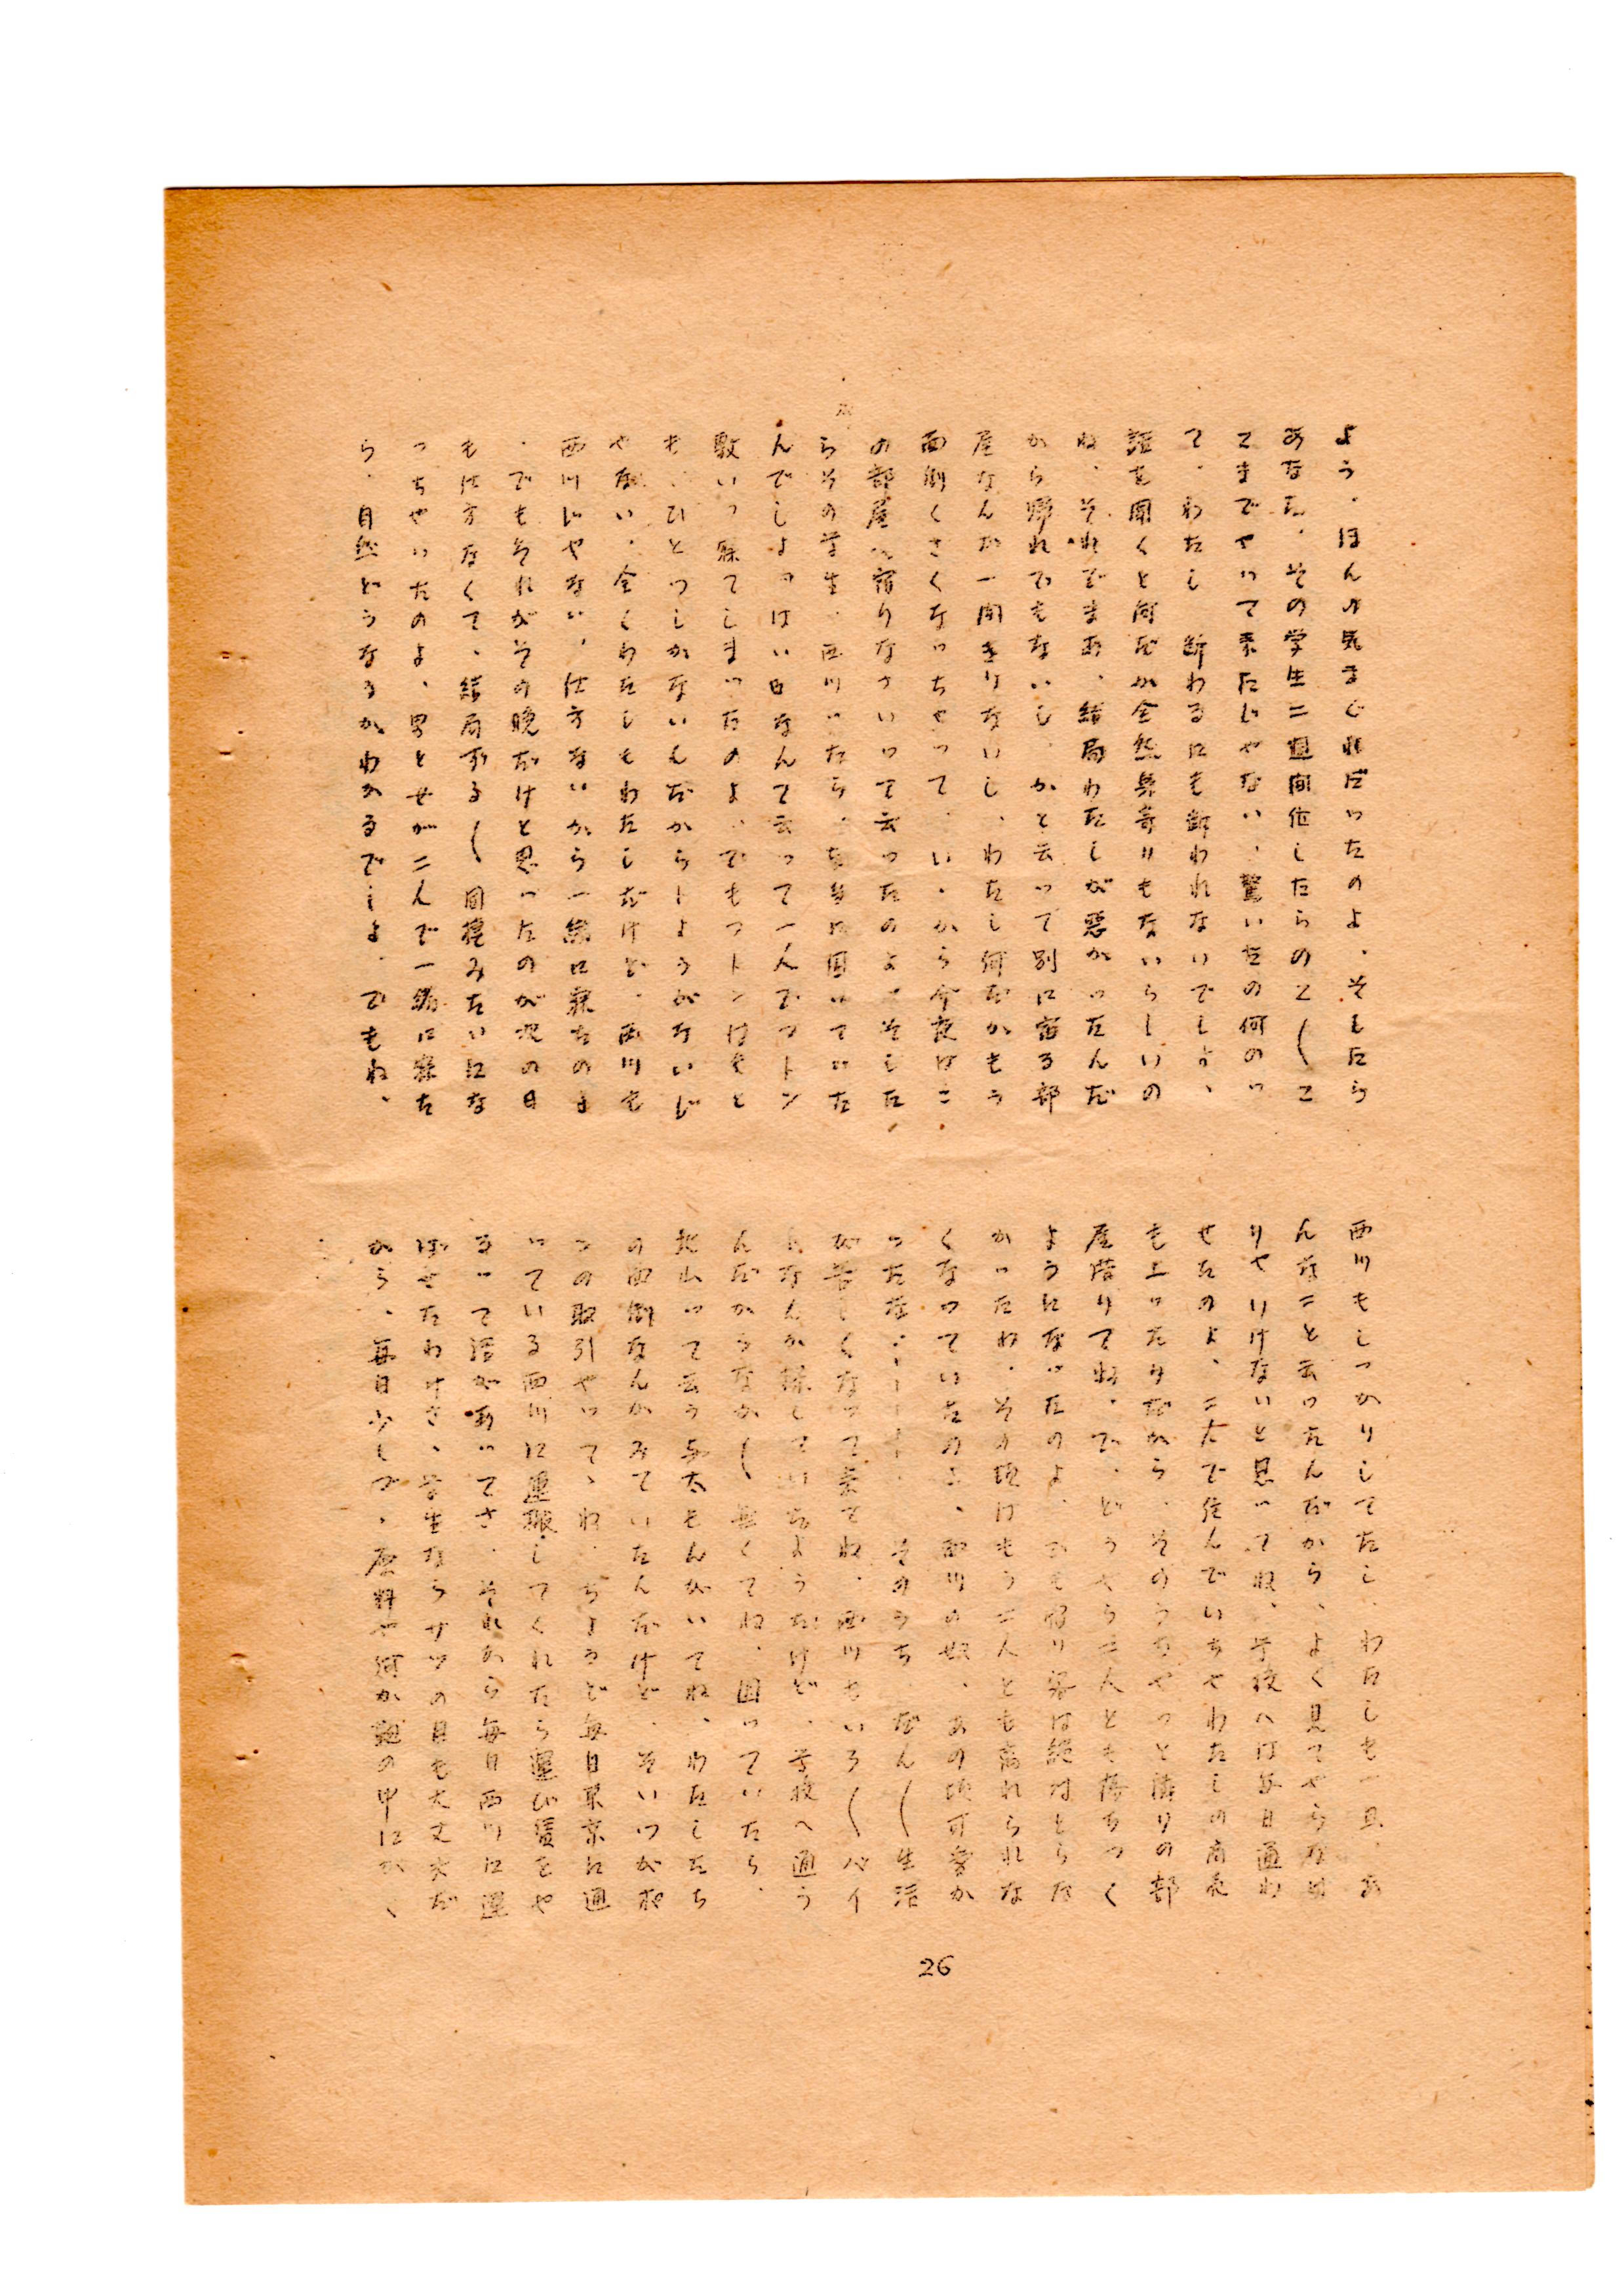 よう．ほんの気まぐれだったのよ．そしたら
あなた．その学生二週間位したらのこ〱こ
こまでやって来たじゃない、驚いたの何のっ
て．わたし　断わるにも断われないでしょ、
話を聞くと何だか全然身寄りもないらしいの
ね．それでまあ、結局わたしが悪かったんだ
から帰れでもないし．かと云って別に宿る部
屋なんか一間きりないし、わたし何だかもう
面倒くさくなっちゃって．い．から今夜はこ
の部屋へ宿りなさいって云ったのよ　そした
らその学生．西川ったら．本当に困っていた
んでしょ　はい　なんて云って一人でフトン
敷いって寐てしまったのよ、でもフトンはそと
も、ひとつしかないんだからしようがないじ
ゃない．全くわたしもわたしだけど．西川も
西川じゃない、仕方ないから一緒に寐たのよ
．でもそれがその晩だけと思ったのが次の日
も仕方なくて、結局ずる〱同棲みたいにな
っちゃったのよ、男と女が二人で一緒に寐た
ら．自然どうなるかわかるでしょ．でもね、
西川もしっかりしてたし．わたしも一旦．あ
んなこと云ったんだから、よく見てやらなけ
りゃいけないと思ってね、学校へは毎日通わ
せたのよ、二人で住んでいちゃわたしの商売
も上ったりだから．そのうちやっと隣りの部
屋借りてね．で．どうやら二人とも落ちつく
ようになったのよ．でも宿り客は絶対とらな
かったわ．その頃はもう二人とも离れられな
くなっていたのよ、西川の奴、あの頃可愛か
ったな‥‥‥．そのうち．だん〱生活
が苦しくなって来てね．西川もいろ〱バイ
トなんか探していたようだけど．学校へ通う
んだからなか〱無くてね、困っていたら．
北山って云う与太もんがいてね、わたしたち
の面倒なんかみていたんだけど．そいつが夜
　の取引やって、ね．ちょうど毎日東京に通
っている西川に運搬してくれたら運び賃をや
るって話があってさ．それから毎日西川に運
ばせたわけさ、学生ならサツの目も大丈夫だ
から、毎日少しづ．原料や何か鞄の中にかく
26